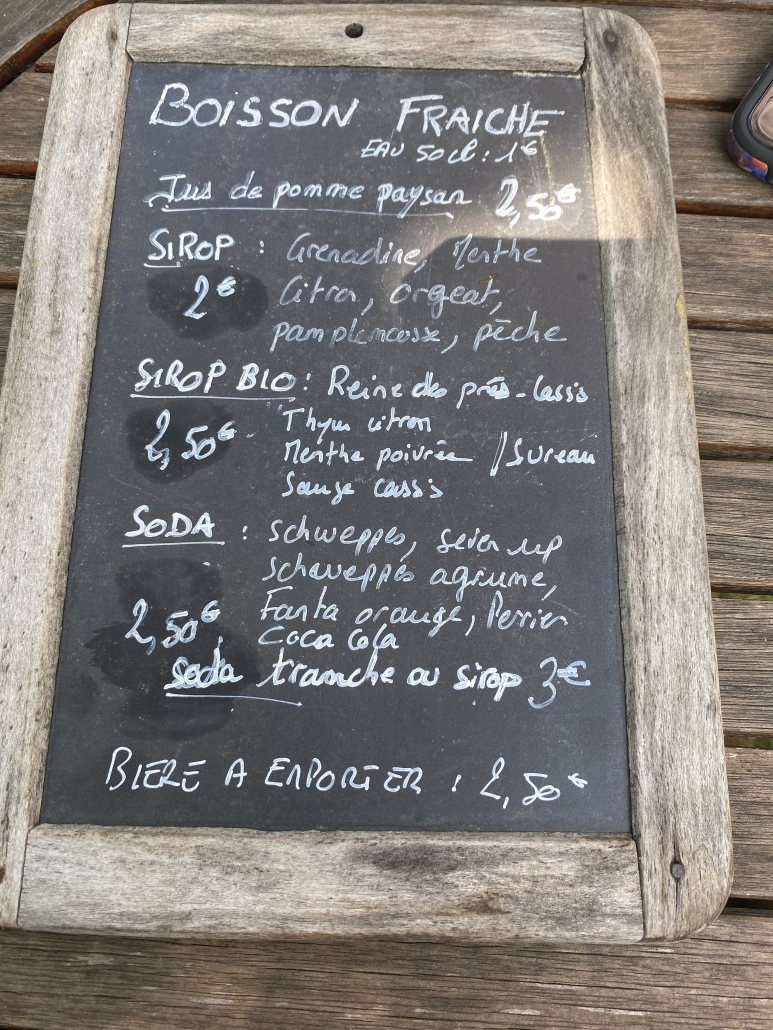 BOISSON FRAICHE
EAU 50cl : 1€
Jus de pomme paysan 2,50€
SIROP : Grenadine, Menthe
2€ Citron, orgeat,
pamplemousse, pêche
SIROP BIO : Reine des prés - Cassis
Thym citron
2,50€ Menthe poivrée / Sureau
Sauge cassis
SODA : schweppes, seven up
schweppes agrume,
2,50€ Fanta orange, Perrier
Coca Cola
soda tranche ou sirop 3€
BIERE A EMPORTER : 2,50€